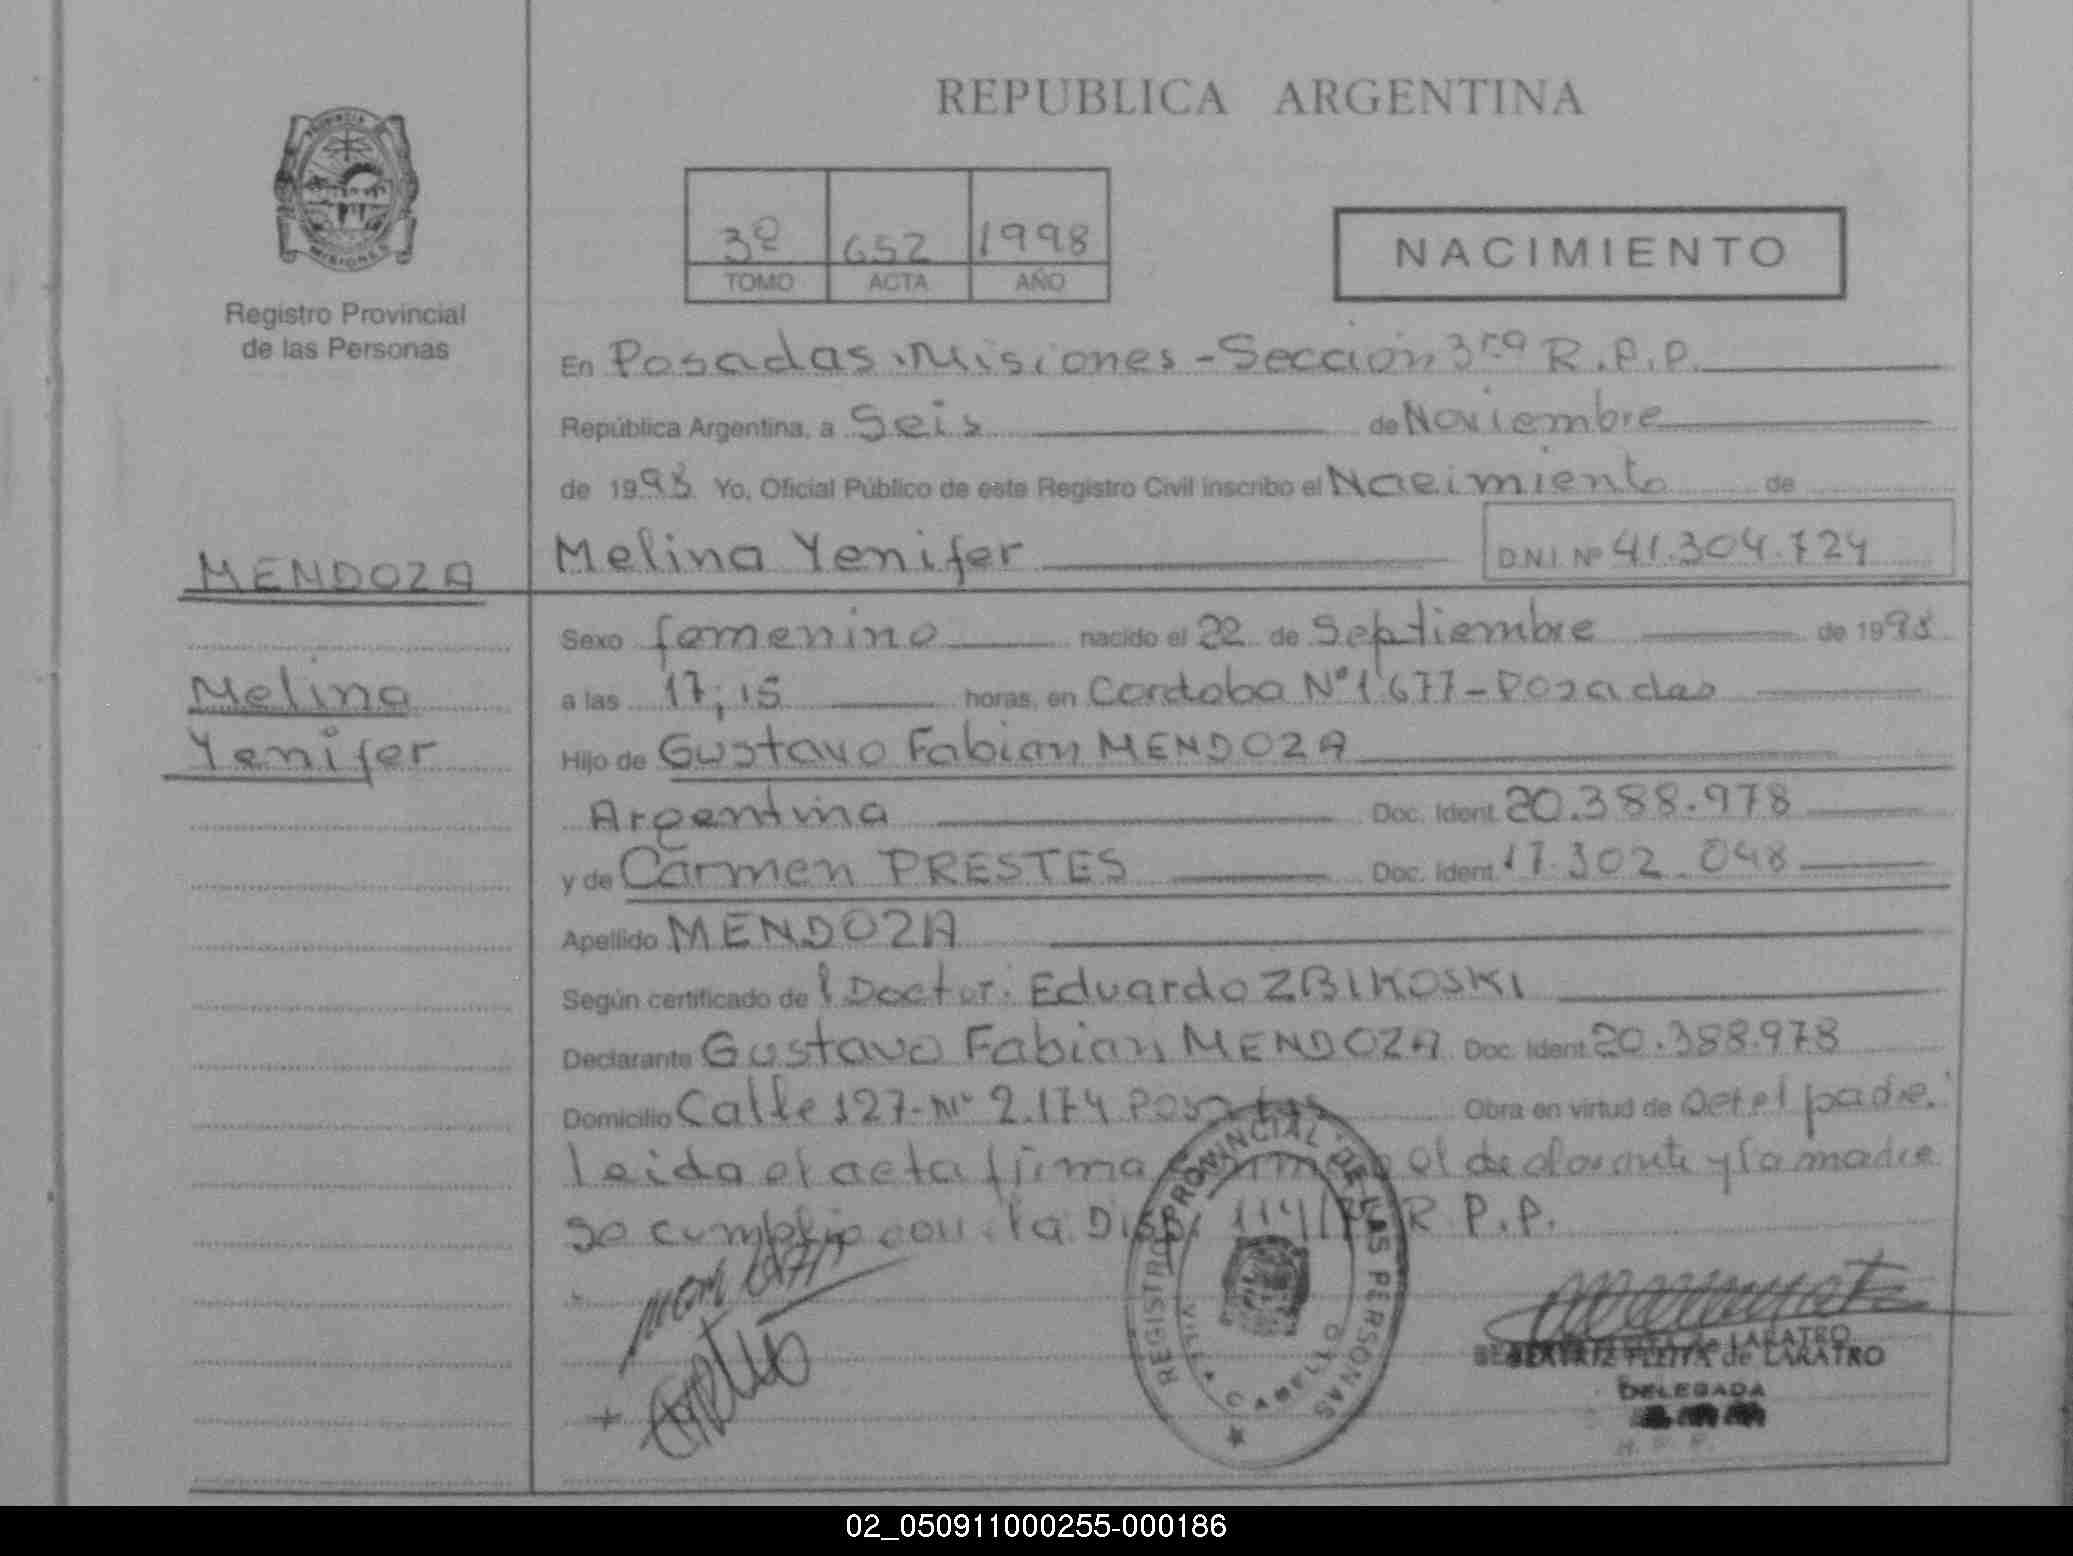 REPUBLICA ARGENTINA
PROVINCIA DE
MISIONES
Registro Provincial
de las Personas
3º 652 1998
TOMO ACTA AÑO
NACIMIENTO
En Posadas.Misiones - Sección 3ra R.P.P.
República Argentina, a Seis de Noviembre
de 1998 Yo, Oficial Público de este Registro Civil inscribo el Nacimiento de
MENDOZA
Melina Yenifer D.N.I. Nº 41.304.724
Sexo femenino nacido el 22 de Septiembre de 1998
Melina
a las 17;15 horas, en Cordoba Nº 1677 - Posadas
Yenifer
Hijo de Gustavo Fabian MENDOZA
Argentina Doc. Ident. 20.388.978
y de Carmen PRESTES Doc. Ident. 17.302.048
Apellido MENDOZA
Según certificado del Doctor: Eduardo ZBIKOSKI
Declarante Gustavo Fabian MENDOZA Doc. Ident. 20.388.978
Domicilio Calle 127-Nº 2.174 Posadas Obra en virtud de ser el padre.
leida el acta firma el declarante y la madre
se cumplio con la Disp. 114/ R.P.P.
REGISTRO PROVINCIAL DE LAS PERSONAS
VILLA CABELLO
BEATRIZ PLEITA de LARATRO
DELEGADA
02_050911000255-000186